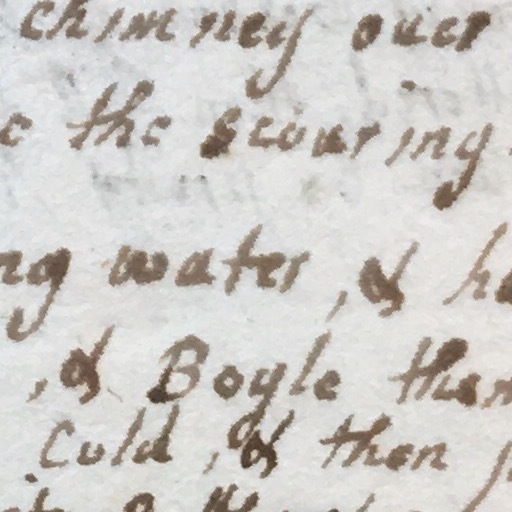 chimney ouer
the scouring
water, & ha
, & Boyle them
Cold, & then